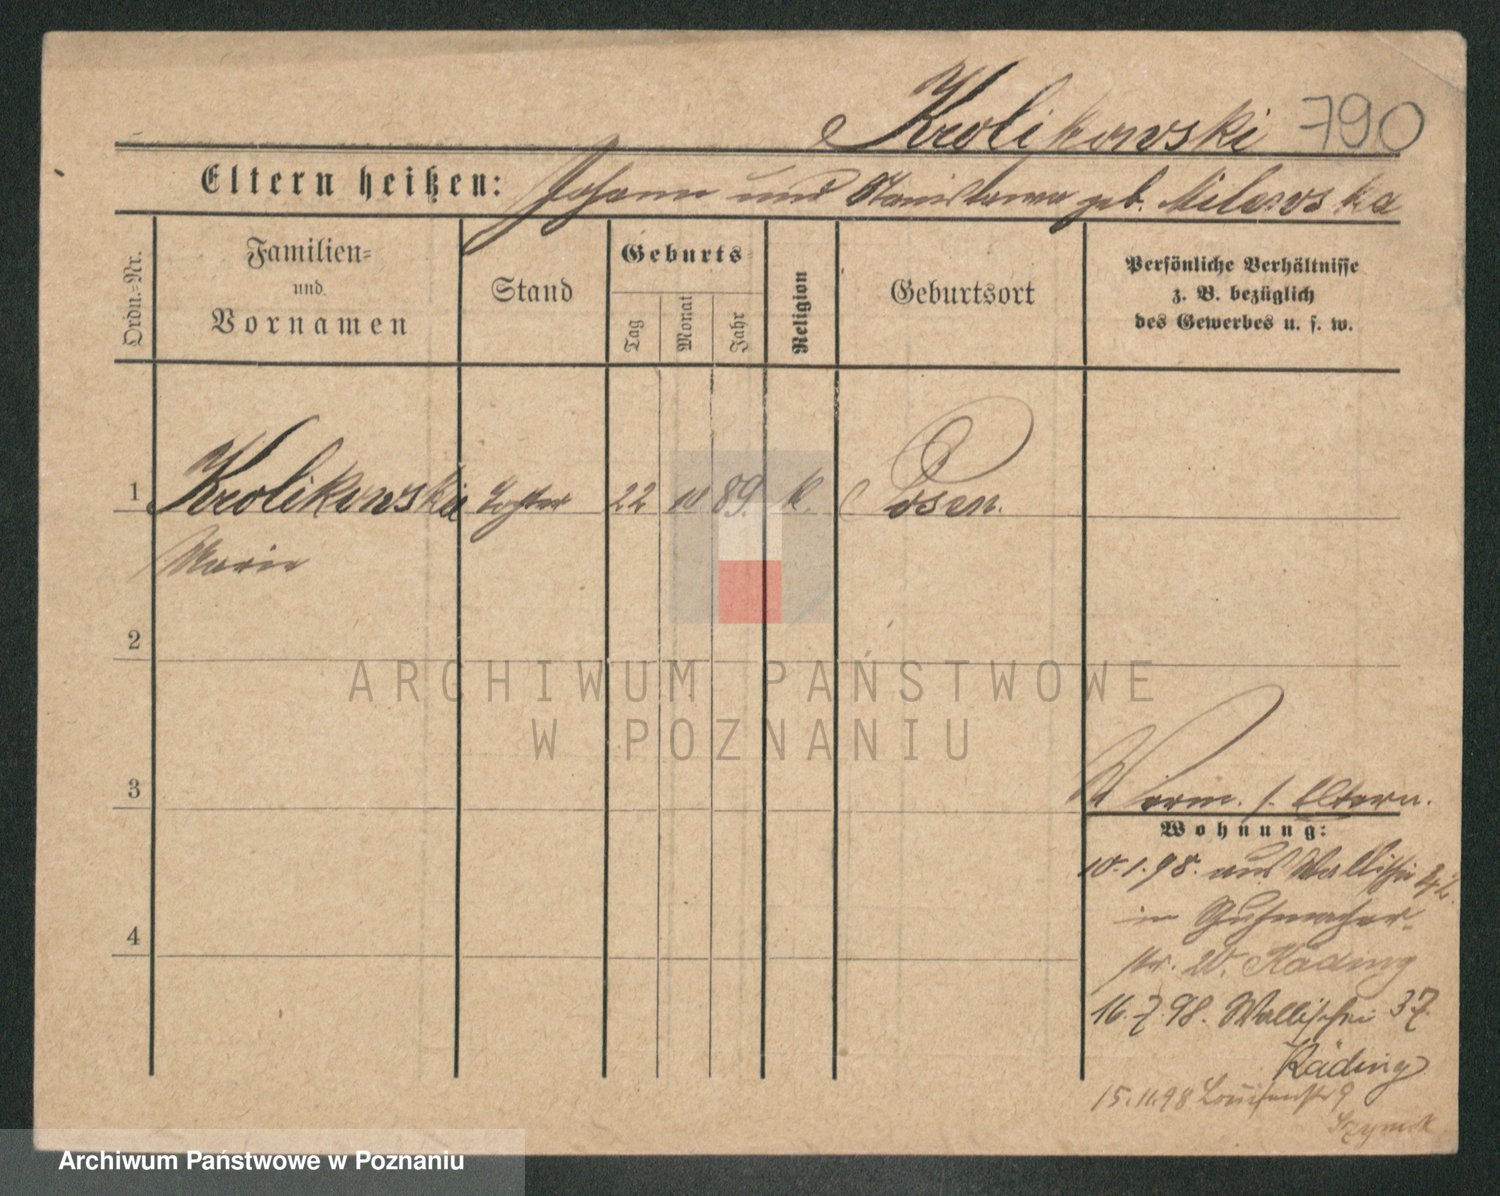 Krolikowski 790
Eltern heißen: Johann und Stanislawa geb. Milewska
Ordn.-Nr.
Familien-
und
Vornamen
Stand
Geburts
Tag
Monat
Jahr
Religion
Geburtsort
Persönliche Verhältnisse
z. B. bezüglich
des Gewerbes u. s. w.
1 Krolikowska Tochter 22 11 89. k. Posen.
Marie
2
3
Eltern.
Wohnung:
10.1.98. aus Wallischei
in Schuhmacher-
str. 20. Käding
4
16.7.98. Wallischei 37.
Käding
15.11.98 Louisenstr 9
Szymk
ARCHIWUM PAŃSTWOWE
W POZNANIU
Archiwum Państwowe w Poznaniu